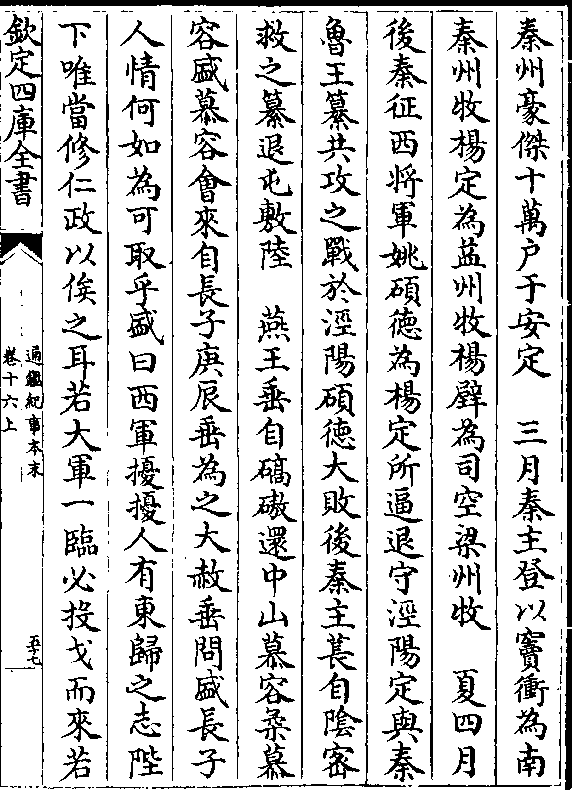 秦州豪傑十萬户于安定　三月秦主登以竇衝為南
秦州牧楊定為益州牧楊壁為司空梁州牧　夏四月
後秦征西将軍姚碩德為楊定所逼退守涇陽定與秦
魯王纂共攻之戰於涇陽碩德大敗後秦主萇自陰密
救之纂退屯敷陸　燕王垂自碻磝還中山慕容柔慕
容盛慕容會來自長子庚辰垂為之大赦垂問盛長子
人情何如為可取乎盛曰西軍擾擾人有東歸之志陛
下唯當修仁政以俟之耳若大軍一臨必投戈而來若
欽定四庫全書
通鑑紀事本末
卷十六上